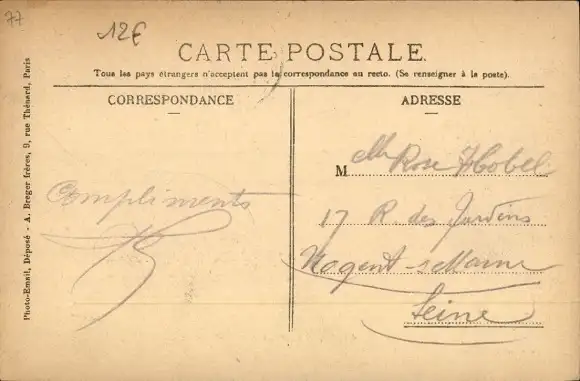 77
12€
CARTE POSTALE.
Tous les pays étrangers n'acceptent pas la correspondance au recto. (Se renseigner à la poste).
CORRESPONDANCE
ADRESSE
Photo-Email, Déposé - A. Breger frères, 9, rue Thénard, Paris
Compliments
M elle Rose
17 R. des Jardins
Nogent s Marne
Seine